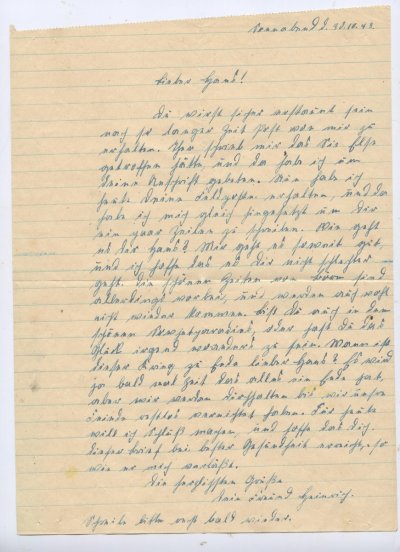 Sonnabend d. 30.10.43.
Lieber Hans!
Du wirst sicher erstaunt sein
nach so langer Zeit Post von mir zu
erhalten. schrieb mir das Sie Else
getroffen hätten, und da habe ich um
Deine Anschrift gebeten. Nun habe ich
heute Deine Feldpostnr. erhalten, und da
habe ich mich gleich hingesetzt um Dir
ein paar Zeilen zu schreiben. Wie geht
es Dir Hans? Mir geht es soweit gut,
und ich hoffe das es Dir nicht schlechter
geht. Die schönen Zeiten von sind
allerdings vorbei, und werden auch wohl
nicht wieder kommen. Bist Du auch in dem
schönen Sowjetparadies, oder hast Du das
Glück irgend woanders zu sein. Wann ist
dieser Krieg zu Ende lieber Hans? Es wird
so bald mal Zeit das alles ein Ende hat,
aber wir werden durchhalten bis wir unsere
Feinde restlos vernichtet haben. Für heute
will ich Schluß machen, und hoffe das Dich
dieser Brief bei bester Gesundheit erreicht, so
wie er mich verläßt.
Die herzlichsten Grüße
Dein Freund Heinrich.
Schreibe bitte recht bald wieder.